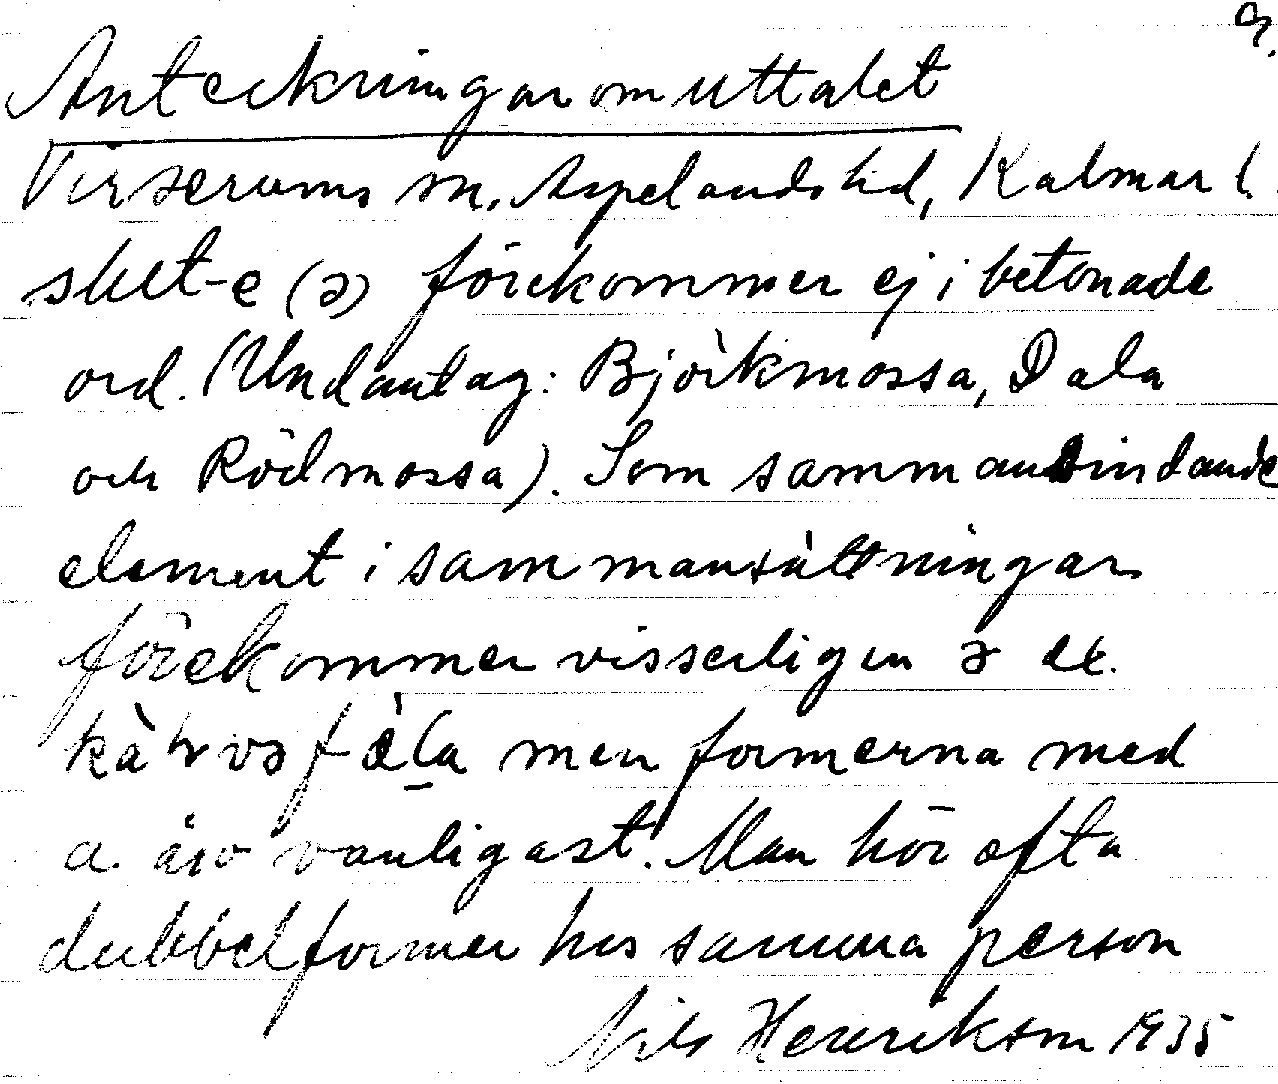 9.
Anteckningar om uttalet
Virserums sn, Aspelands hd, Kalmar l.
slut-e (ə) förekommer ej i betonade
ord. (Undantag: Björkmossa, Dala
och Rödmossa). Som sammanbindande
element i sammansättningar
förekommer visserligen ə ex.
men formerna med
a äro vanligast. Man hör ofta
dubbelformer hos samma person
Nils Henrikson 1935